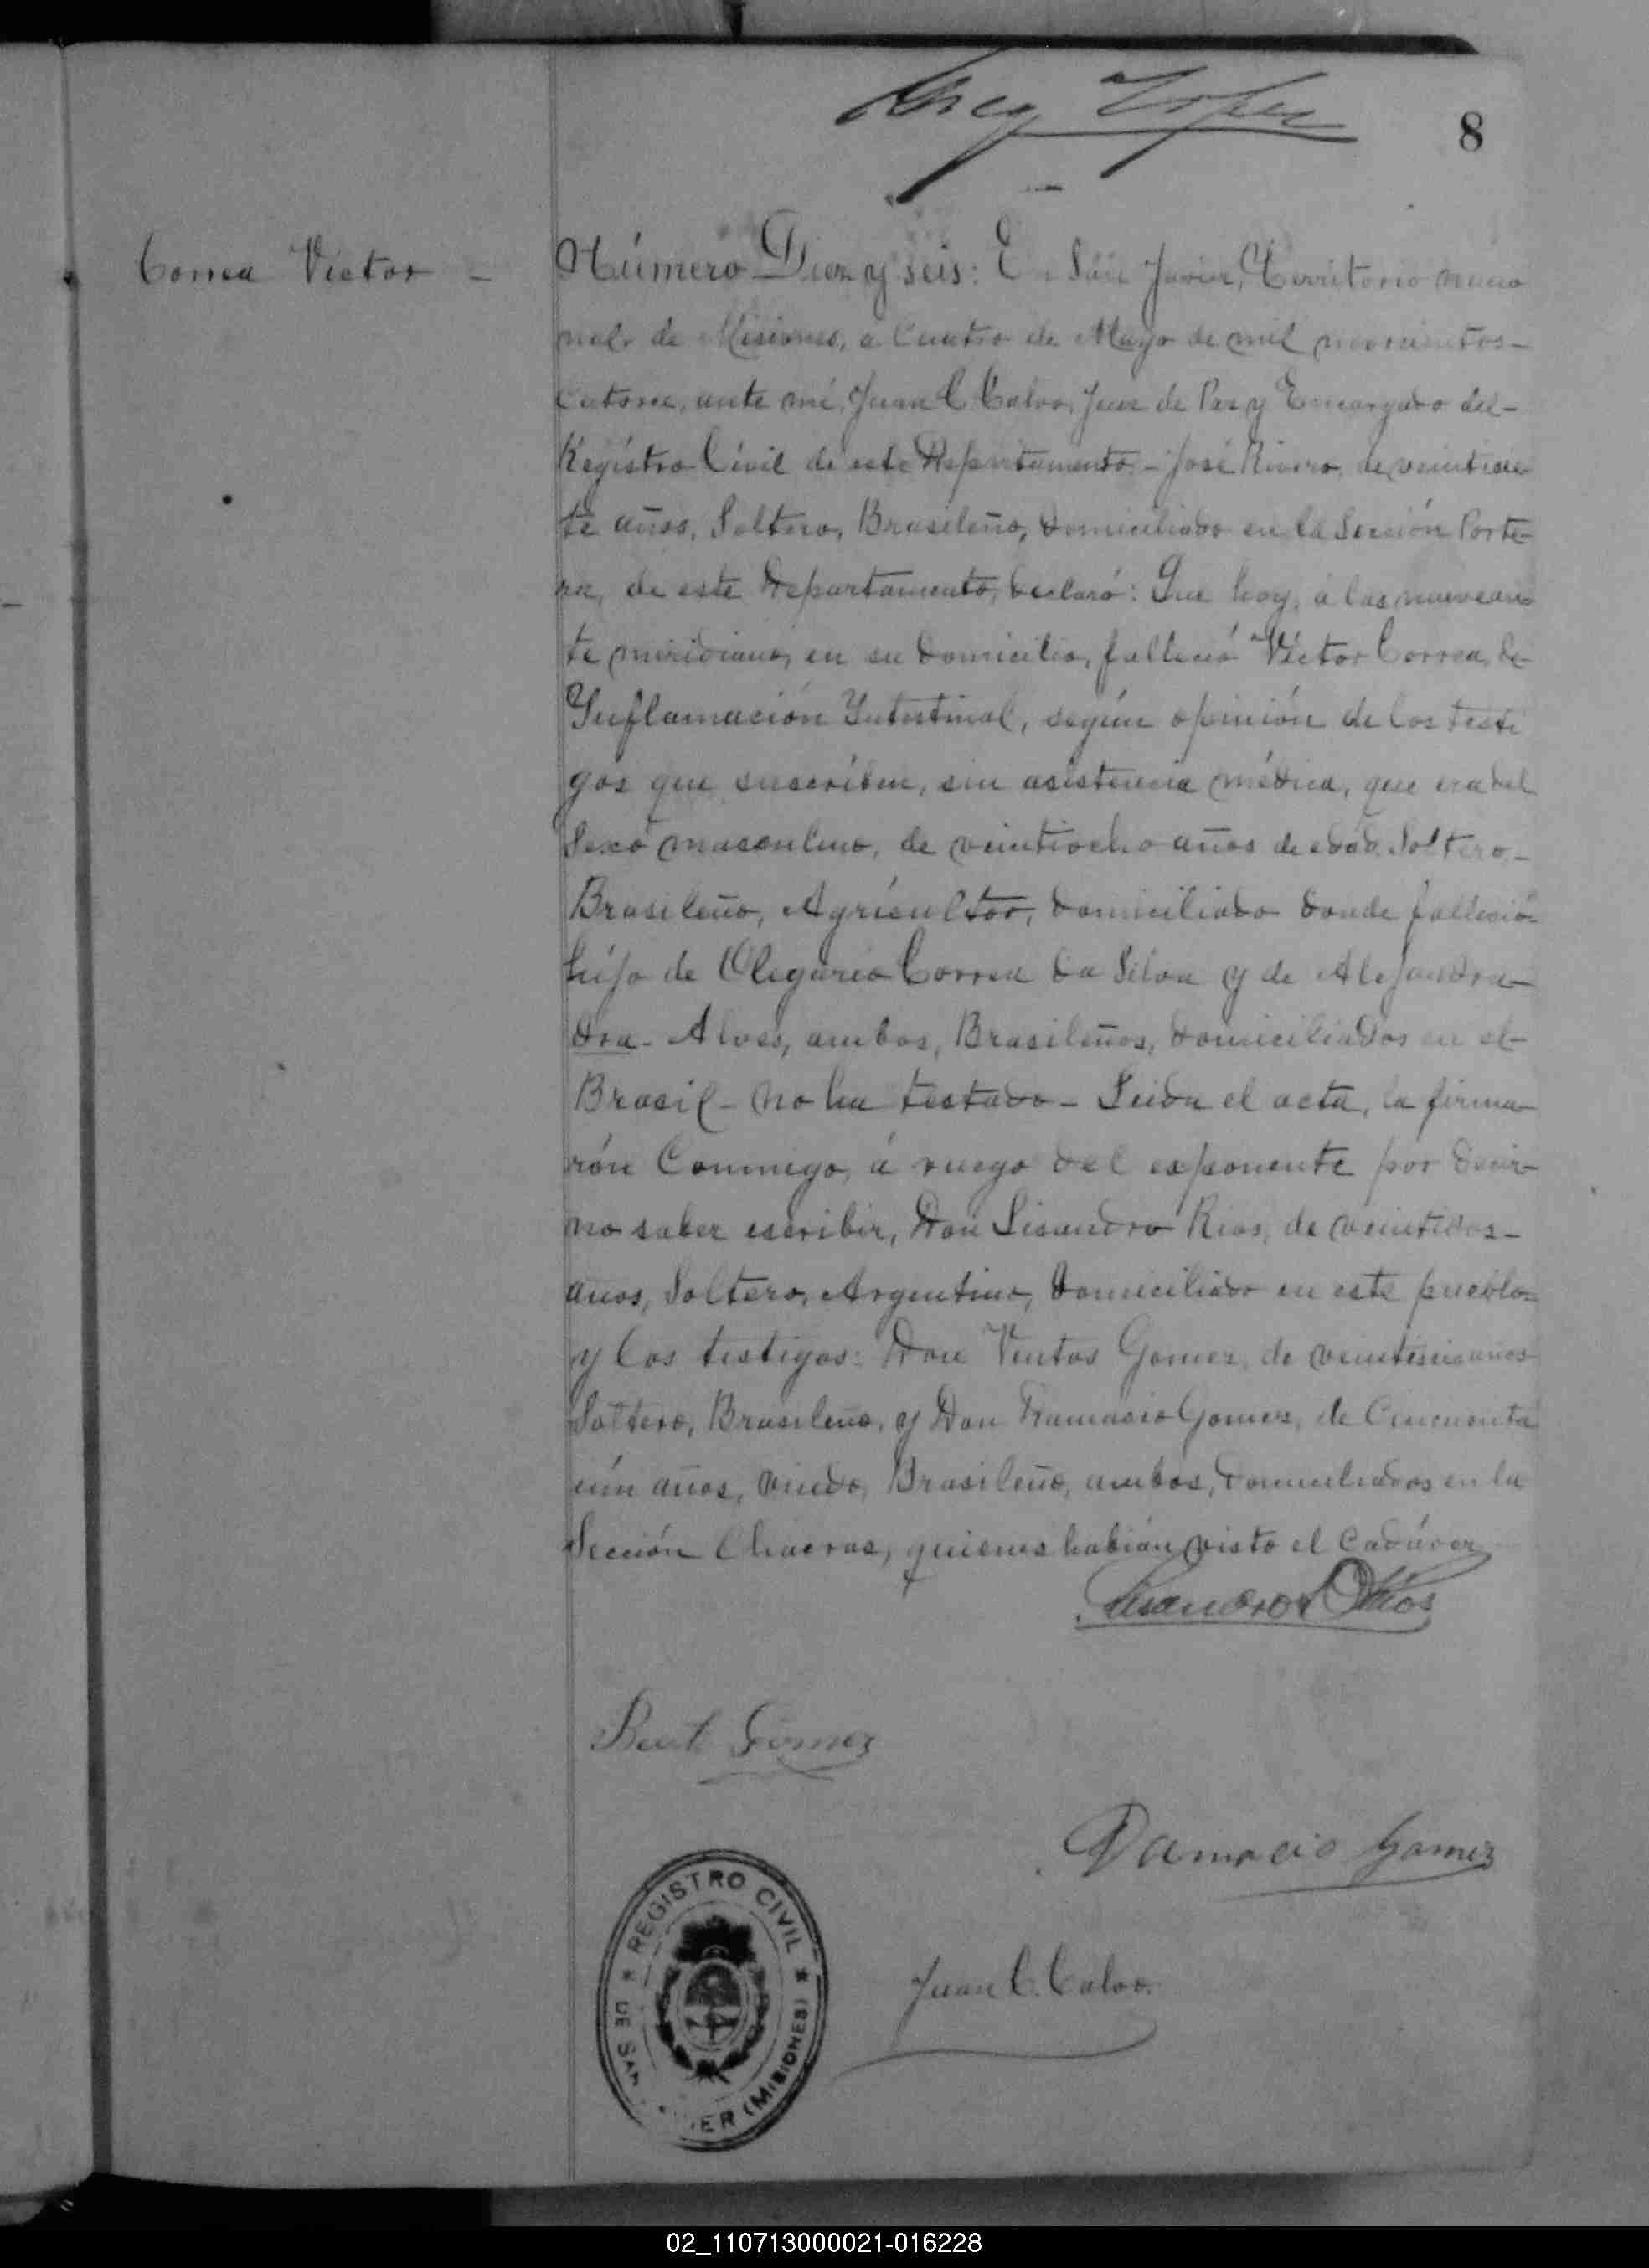 Lopez
8
Correa Victor -
Número Diez y seis: En San Javier, Territorio nacio
nal de Misiones, a Cuatro de Mayo de mil novecientos-
Catorce, ante mí, Juan C Calvo, Juez de Paz y Encargado del-
Registro Civil de este Departamento.- José Rivero, de veintisie
te años, Soltero, Brasileño, domiciliado en la Sección Porte-
ra, de este Departamento, declaró: Que hoy, á las nueve an-
te meridiano, en su domicilio, falleció Víctor Correa, de-
Inflamación Intestinal, según opinión de los testi
gos que suscríben, sin asistencia médica, que era del
Sexo masculino, de veintiocho años de edad, Soltero-
Brasileño, Agrícultor, domiciliado donde falleció-
hijo de Olegario Correa da Silva y de Alejandra-
dra- Alves, ambos, Brasileños, domiciliados en el-
Brasil- no ha testado- Leida el acta, la firma-
rón Conmigo, á ruego del exponente por decir-
no saber escribir, Don Lisandro Rios, de veintidos-
años, Soltero, Argentino, domiciliado en este pueblo-
y los testigos: Don Ventos Gomez, de veintiseis años
Soltero, Brasileño, y Don Damasio Gomez, de Cincuenta
ún años, viudo, Brasileño, ambos, domiciliados en la
Sección Chacras, quienes habían visto el cadáver
Lisandro Rios
Gomez
Damacio Gomez
REGISTRO CIVIL
DE SAN ER (MISIONES)
Juan C. Calvo.
02_110713000021-016228